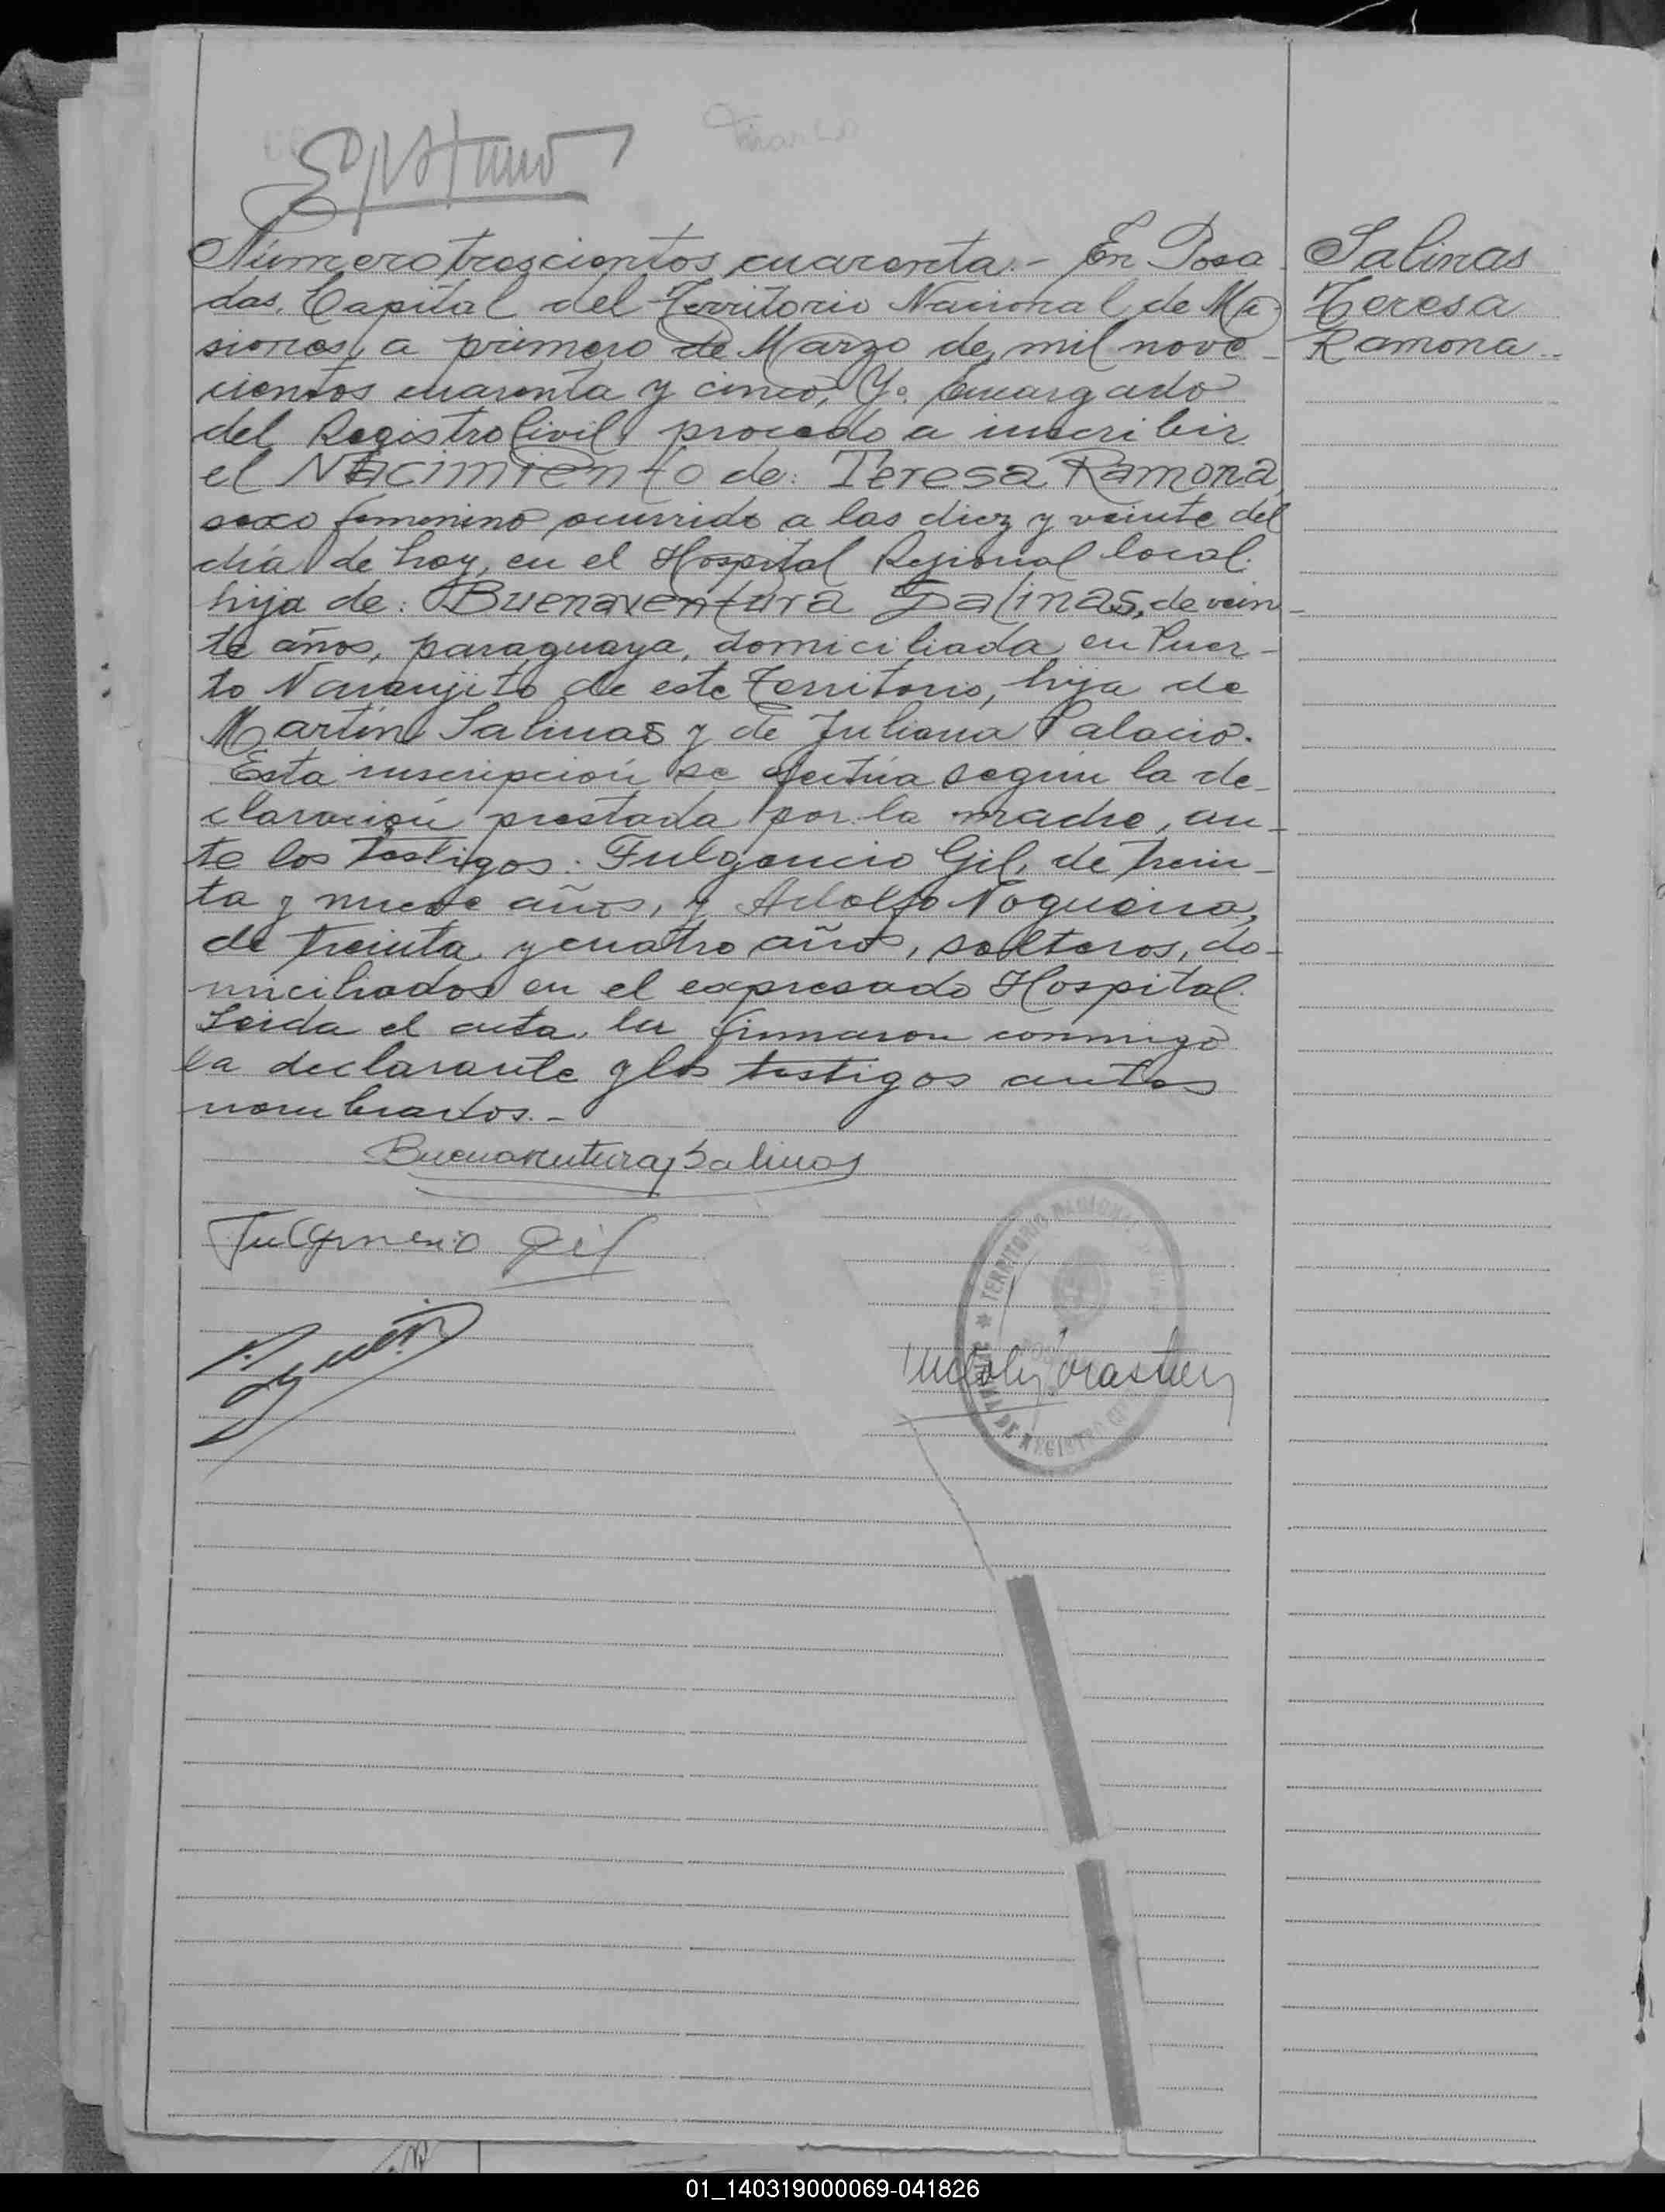 Número trescientos cuarenta.- En Posa
das, Capital del Territorio Nacional de Mi
siones, a primero de Marzo de mil nove-
cientos cuarenta y cinco, Yo Encargado
del Registro Civil, procedo a inscribir
el Nacimiento de: Teresa Ramona,
sexo femenino ocurrido a las diez y veinte del
día de hoy, en el Hospital Regional local.
hija de: Buenaventura Salinas, de vein-
te años, paraguaya, domiciliada en Puer-
to Naranjito de este Territorio, hija de
Martín Salinas y de Juliana Palacio.
Esta inscripción se efectúa según la de-
claración prestada por la madre, an-
te los testigos: Fulgencio Gil, de trein-
ta y nueve años, y Adolfo Nogueira,
de treinta y cuatro años, solteros, do-
miciliados en el expresado Hospital.
Leida el acta, la firmaron conmigo
la declarante y los testigos antes
nombrados.-
Buenaventura Salinas
Fulgencio Gil
TERRITORIO NACIONAL
DE REGISTRO
Salinas
Teresa
Ramona
01_140319000069-041826